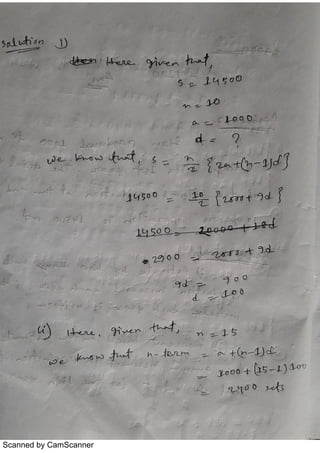 Solution 1)
Here given that,
s = 14500
n = 10
a = 1000
d = ?
we know that, s = n/2 {2a+(n-1)d}
14500 = 10/2 {2000+9d}
14500 = 20000 + 18d
2900 = 2000 + 9d
9d = 900
d = 100
(ii) Here, given that, n = 15
we know that n-term = a+(n-1)d
= 1000 + (15-1)100
= 2400 sets
Scanned by CamScanner